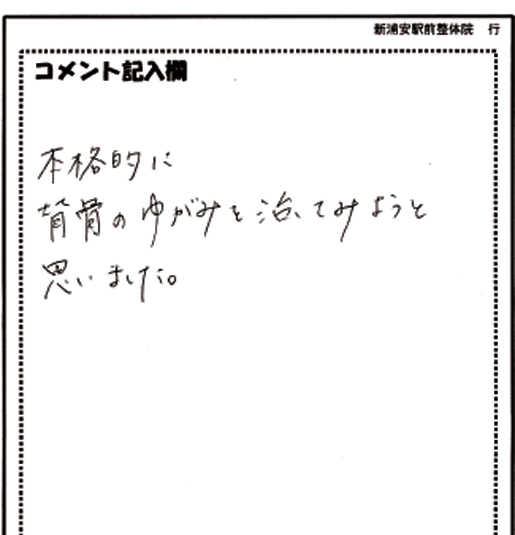 新浦安駅前整体院 行
コメント記入欄
本格的に
背骨のゆがみを治してみようと
思いました。